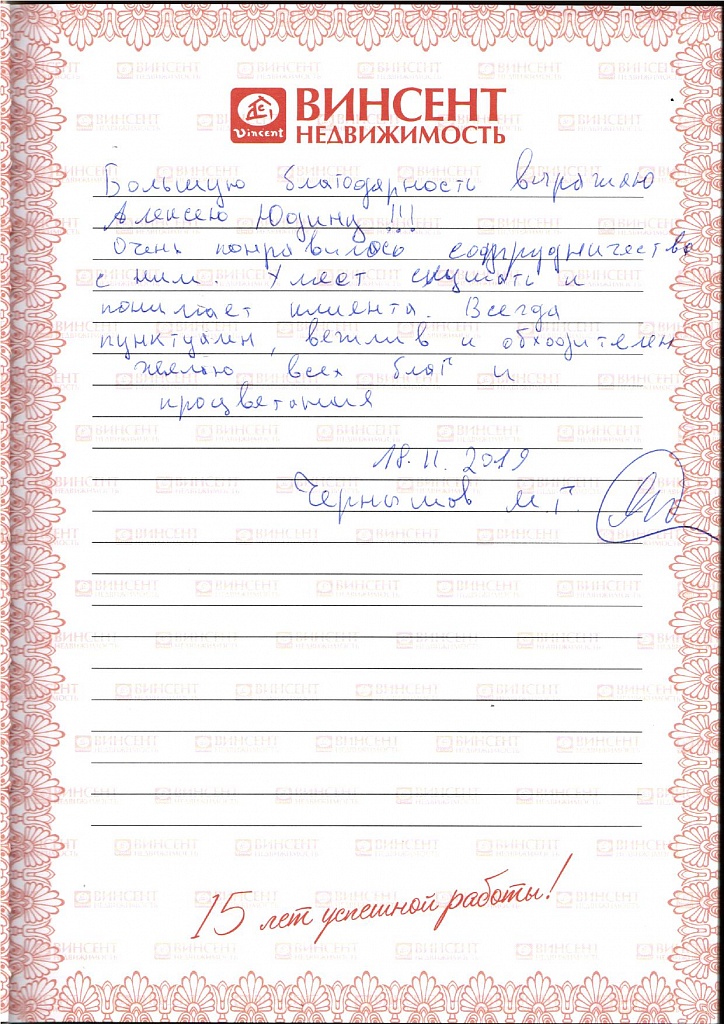 Vincent
ВИНСЕНТ
НЕДВИЖИМОСТЬ
Большую благодарность выражаю
Алексею Юдину !!!
Очень понравилось сотрудничество
с ним. Умеет слушать и
понимает клиента. Всегда
пунктуален, вежлив и обходителен
желаю всех благ и
процветания
18.11.2019
Чернышов М.Г.
15 лет успешной работы!